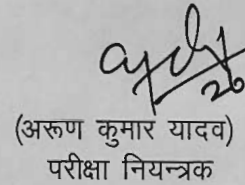 (अरूण कुमार यादव)
परीक्षा नियन्त्रक